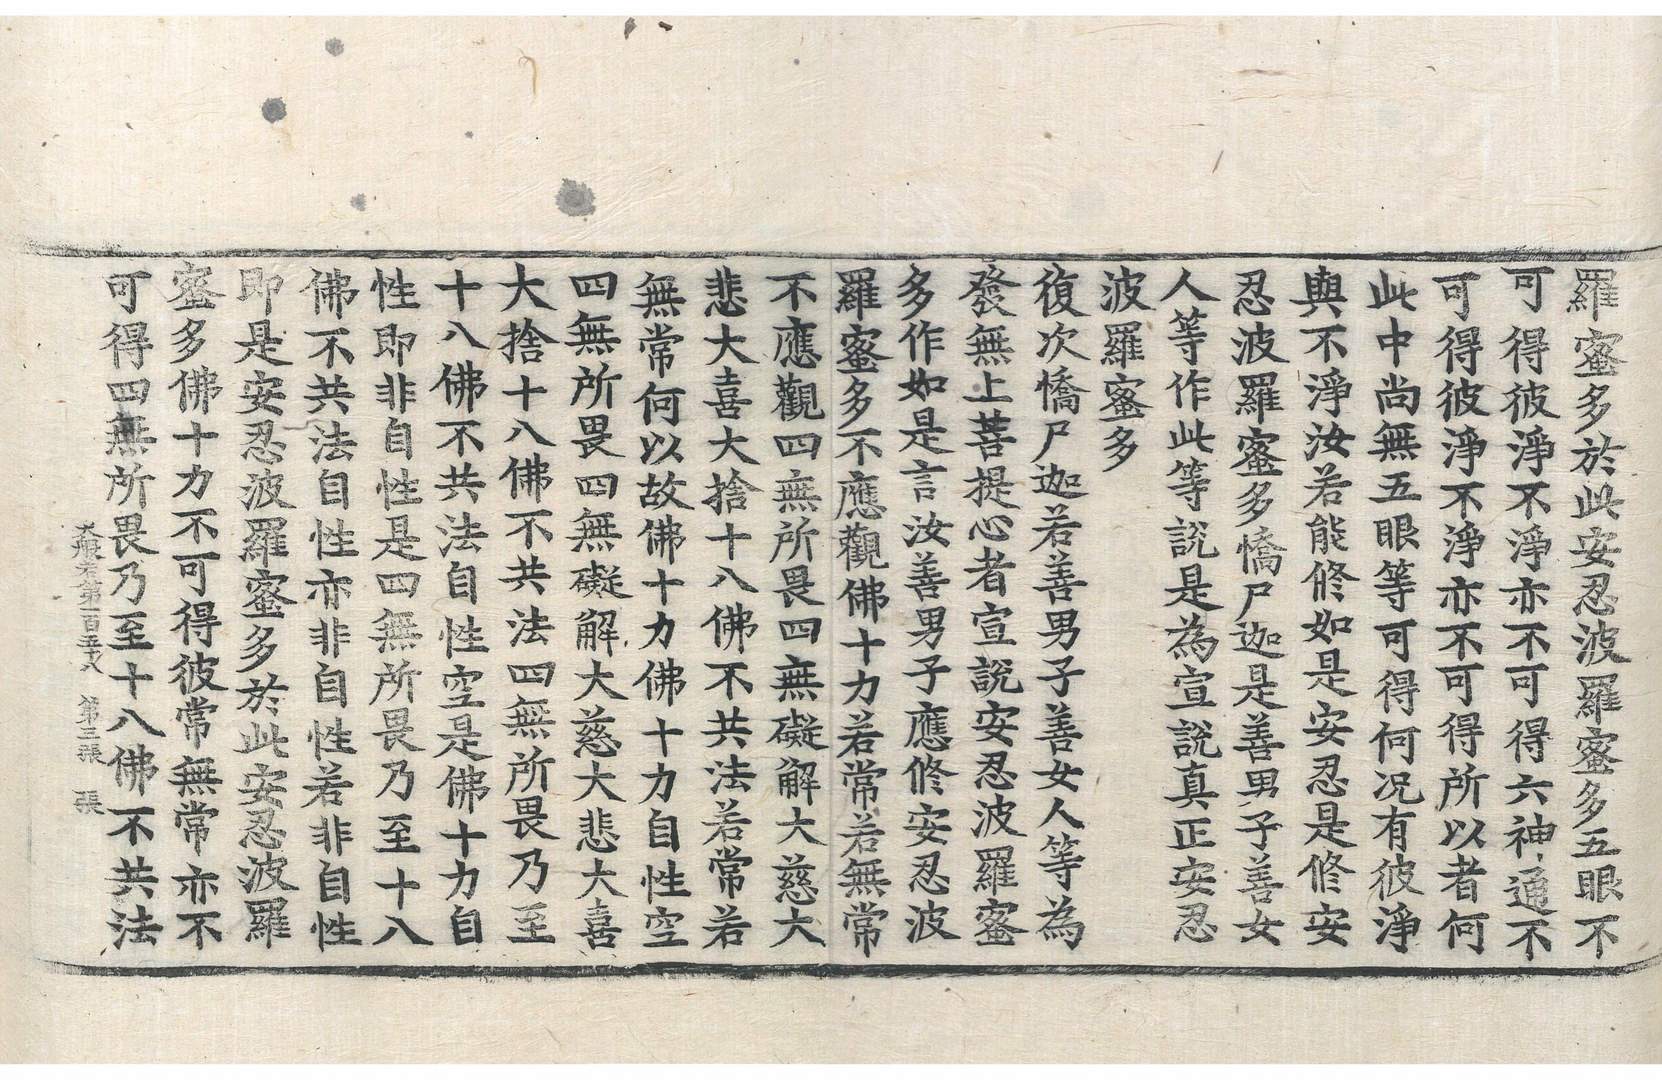 羅蜜多於此安忍波羅蜜多五眼不
可得彼淨不淨亦不可得六神通不
可得彼淨不淨亦不可得所以者何
此中尚無五眼等可得何况有彼淨
與不淨汝若能修如是安忍是修安
忍波羅蜜多憍尸迦是善男子善女
人等作此等說是為宣說真正安忍
波羅蜜多
復次憍尸迦若善男子善女人等為
發無上菩提心者宣說安忍波羅蜜
多作如是言汝善男子應修安忍波
羅蜜多不應觀佛十力若常若無常
不應觀四無所畏四無礙解大慈大
悲大喜大捨十八佛不共法若常若
無常何以故佛十力佛十力自性空
四無所畏四無礙解大慈大悲大喜
大捨十八佛不共法四無所畏乃至
十八佛不共法自性空是佛十力自
性即非自性是四無所畏乃至十八
佛不共法自性亦非自性若非自性
即是安忍波羅蜜多於此安忍波羅
蜜多佛十力不可得彼常無常亦不
可得四無所畏乃至十八佛不共法
大般若第一百五十八 第三張 張